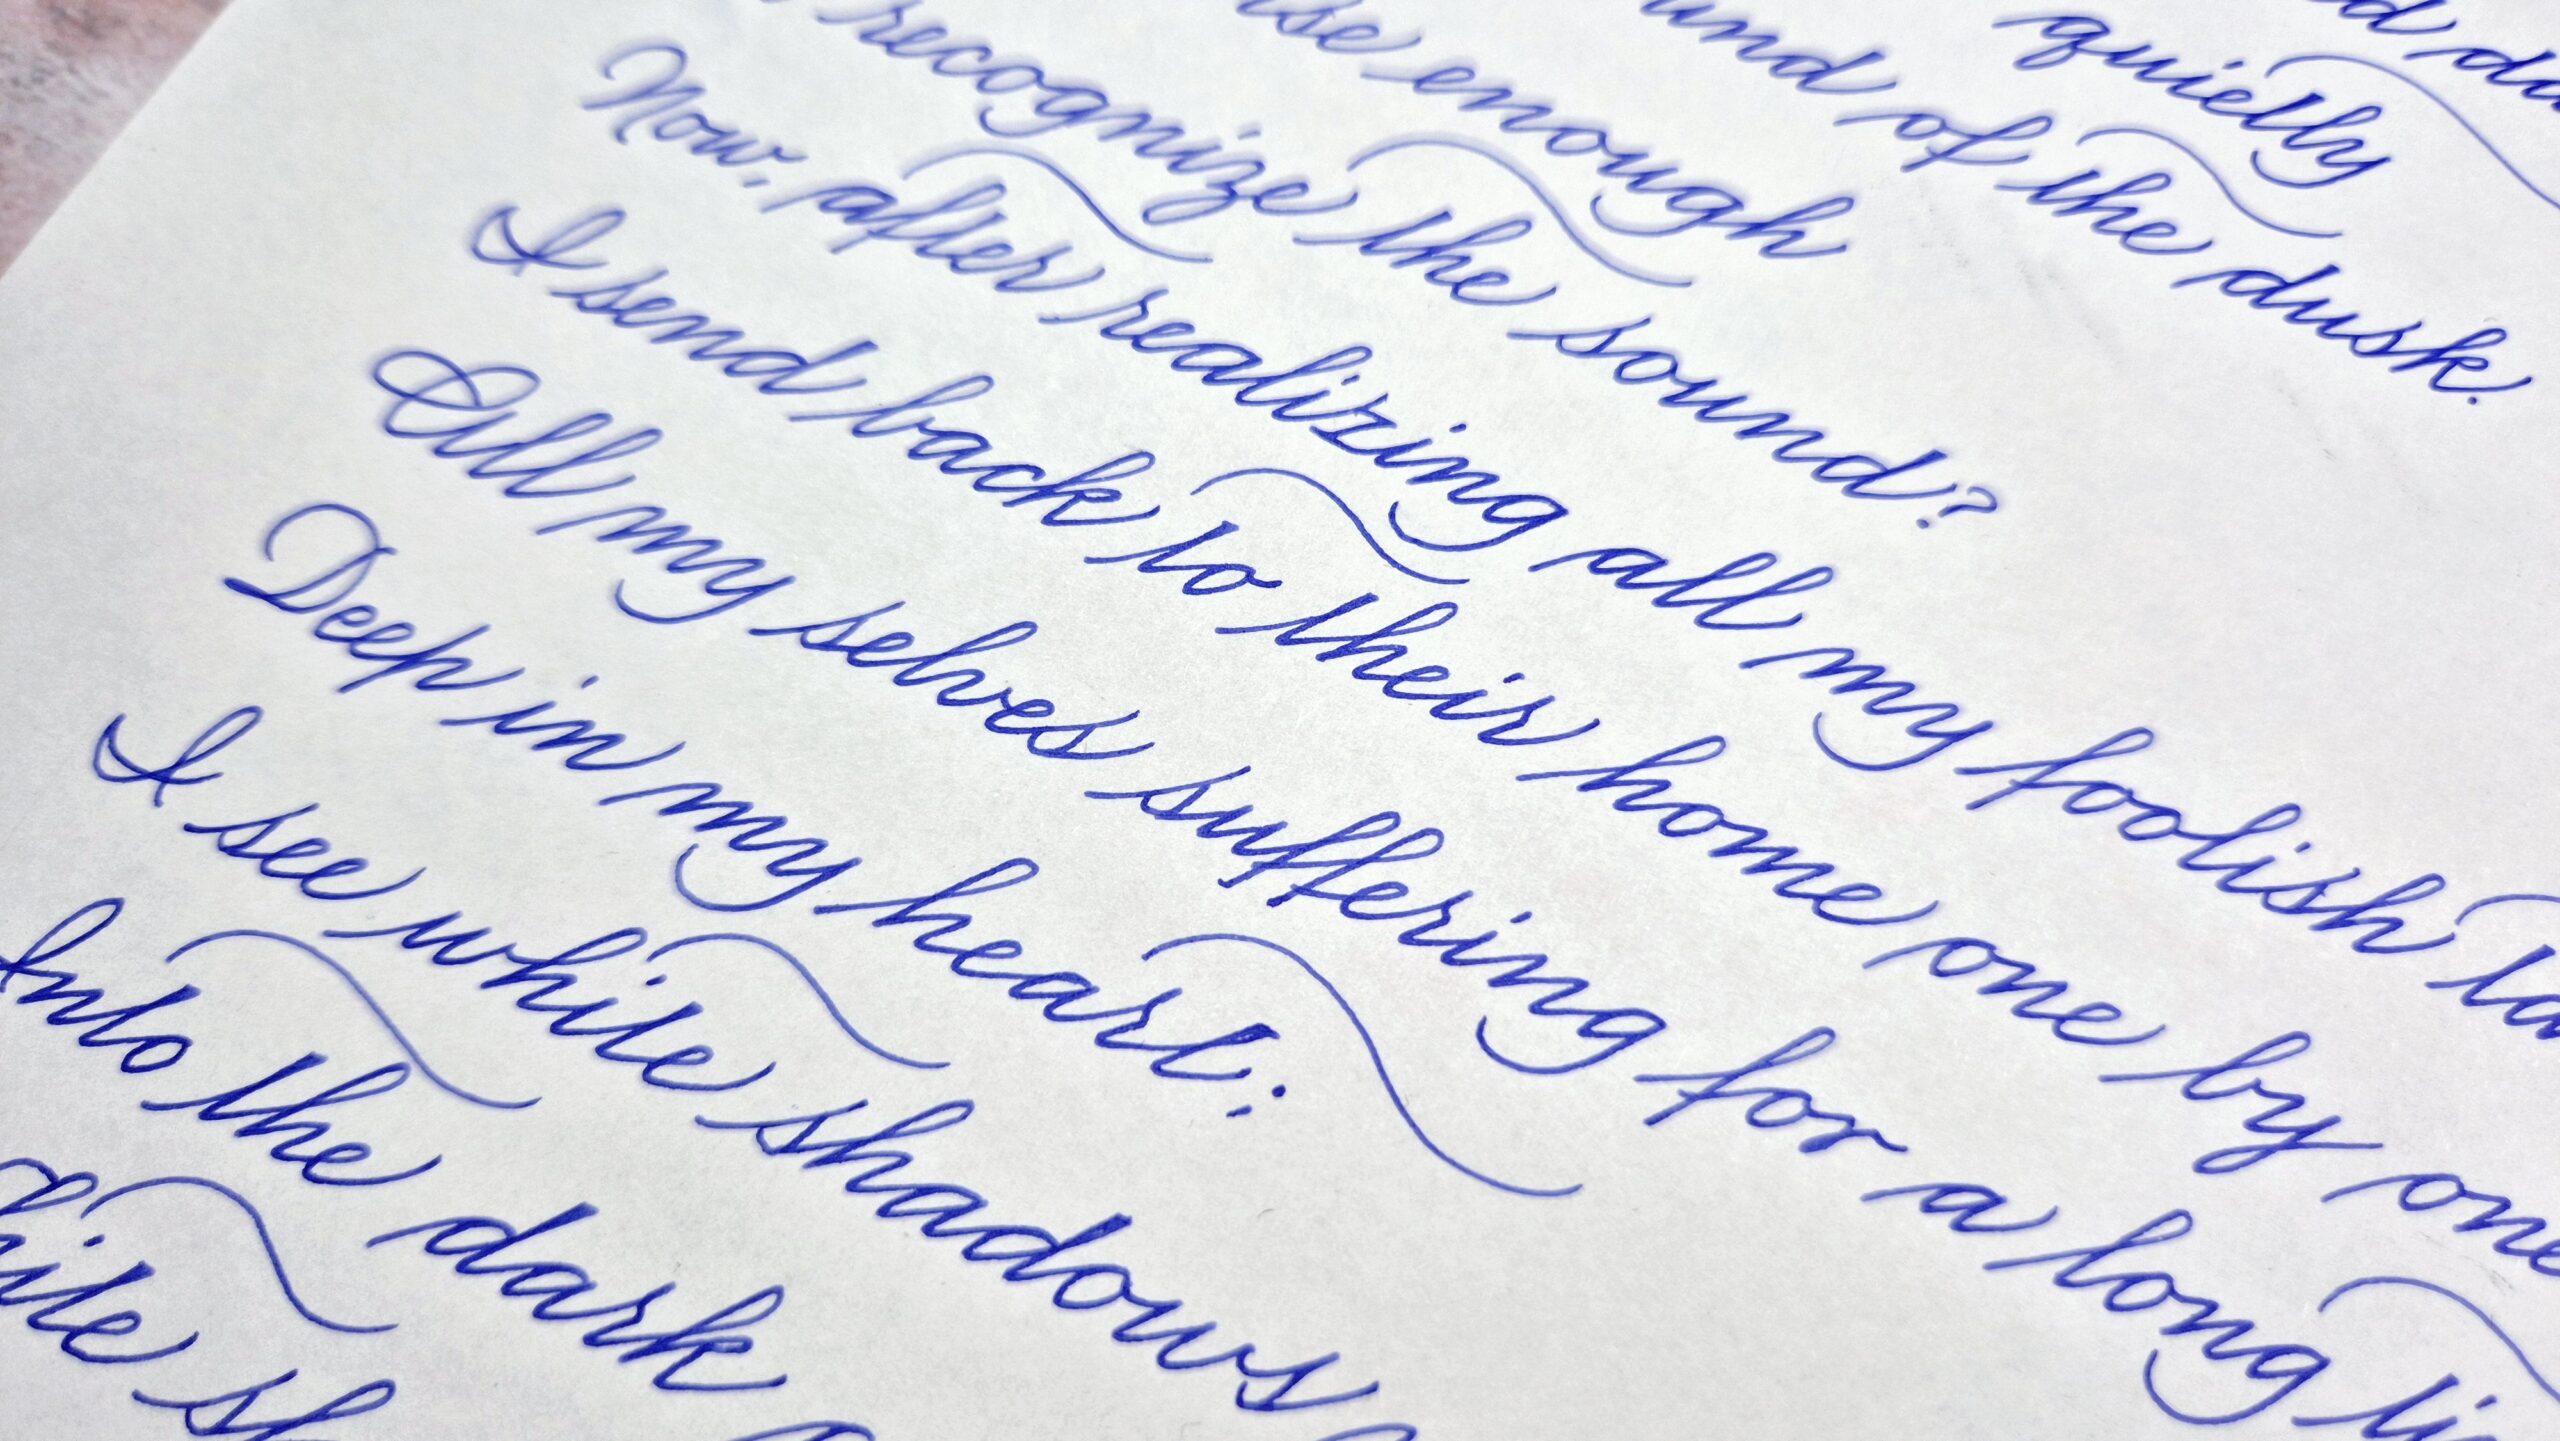 quietly
of the dusk.
enough
recognize the sound?
Now, after realizing all my foolish
I send back to their home one by one
All my selves suffering for a long
Deep in my heart:
I see white shadows
Into the dark